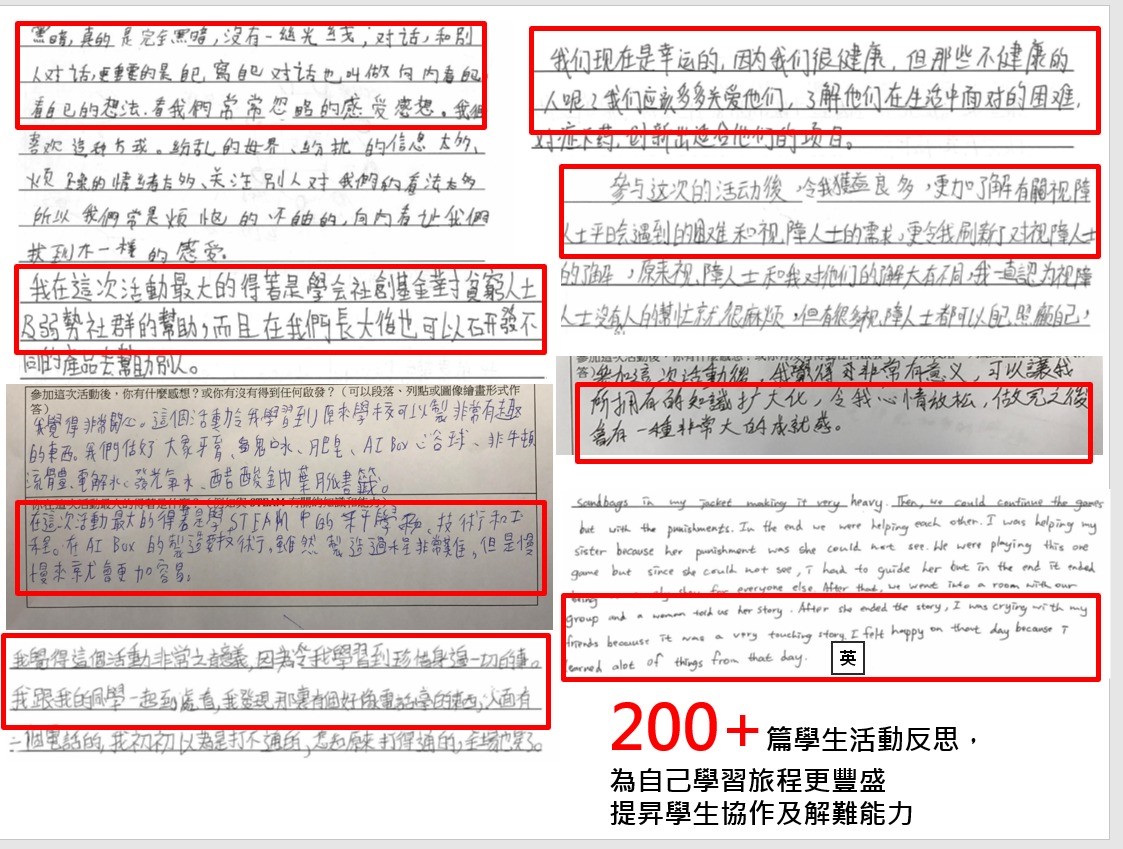 黑暗,真的是完全黑暗,沒有一絲光线;对话,和別
人对话,更重要的是自己寫自己对话也叫做向內看自己
看自己的想法.看我們常常忽略的感受感想。我們
喜欢這种方式。紛乱的世界、紛扰的信息太多、
烦躁的情緒太多、关注別人对我們的看法太多
所以我們常是烦恼的不自由的,向內看让我們
找到不一樣的感受。
我在這次活動最大的得著是學会社創基金對貧窮人士
及弱勢社群的幫助,而且在我們長大後也可以研發不
同的產品去幫助別人。
參加這次活動後,你有什麼感想?或你有沒有得到任何啟發?(可以段落、列點或圖像繪畫形式作
答)
我覺得非常開心。這個活動令我學習到原來學校可以製非常有趣
的東西。我們做好大象牙膏、魚鬼口水、肥皂、AI Box、沙谷球、非牛頓
流體、電解水、發光氣水、醋酸鈉、葉脈書籤。
在這次活動最大的得著是學STEAM中的科學、技術和工
程。在AI Box的製造要技術,雖然製造過程非常難,但是慢
慢來就會更加容易。
我覺得這個活動非常之有意義,因為令我學習到珍惜身邊一切的事。
我跟我的同學一起到處看,我發現那裏有個好像電話亭的東西,入面有
一個電話的,我初初以為是打不通的,怎知原來打得通的,全場也笑了。
我们现在是幸运的,因为我们很健康,但那些不健康的
人呢?我们应该多多关爱他们,了解他们在生活中面对的困难,
对症下药,创新出适合他们的项目。
參与这次的活动後,令我獲益良多,更加了解有關視障
人士平日会遇到的困难和視障人士的需求,更令我刷新了对視障人士
的了解,原來視障人士和我对他們的了解大有不同,我一直認为視障
人士沒有人的幫忙就很麻烦,但有很多視障人士都可以自己照顧自己,
參加這次活動後,我覺得非常有意义,可以讓我
所擁有的知識扩大化,令我心情放松,做完之後
會有一種非常大的成就感。
sandbags in my jacket making it very heavy. Then, we could continue the games
but with the punishments. In the end we were helping each other. I was helping my
sister because her punishment was she could not see. We were playing this one
game but since she could not see, i had to guide her but in the end it ended
for everyone else. After that, we went into a room with our
group and a woman told us her story. After she ended the story, I was crying with my
friends because it was a very touching story. I felt happy on that day because i
learned alot of things from that day.
英
200+篇學生活動反思,
為自己學習旅程更豐盛
提昇學生協作及解難能力